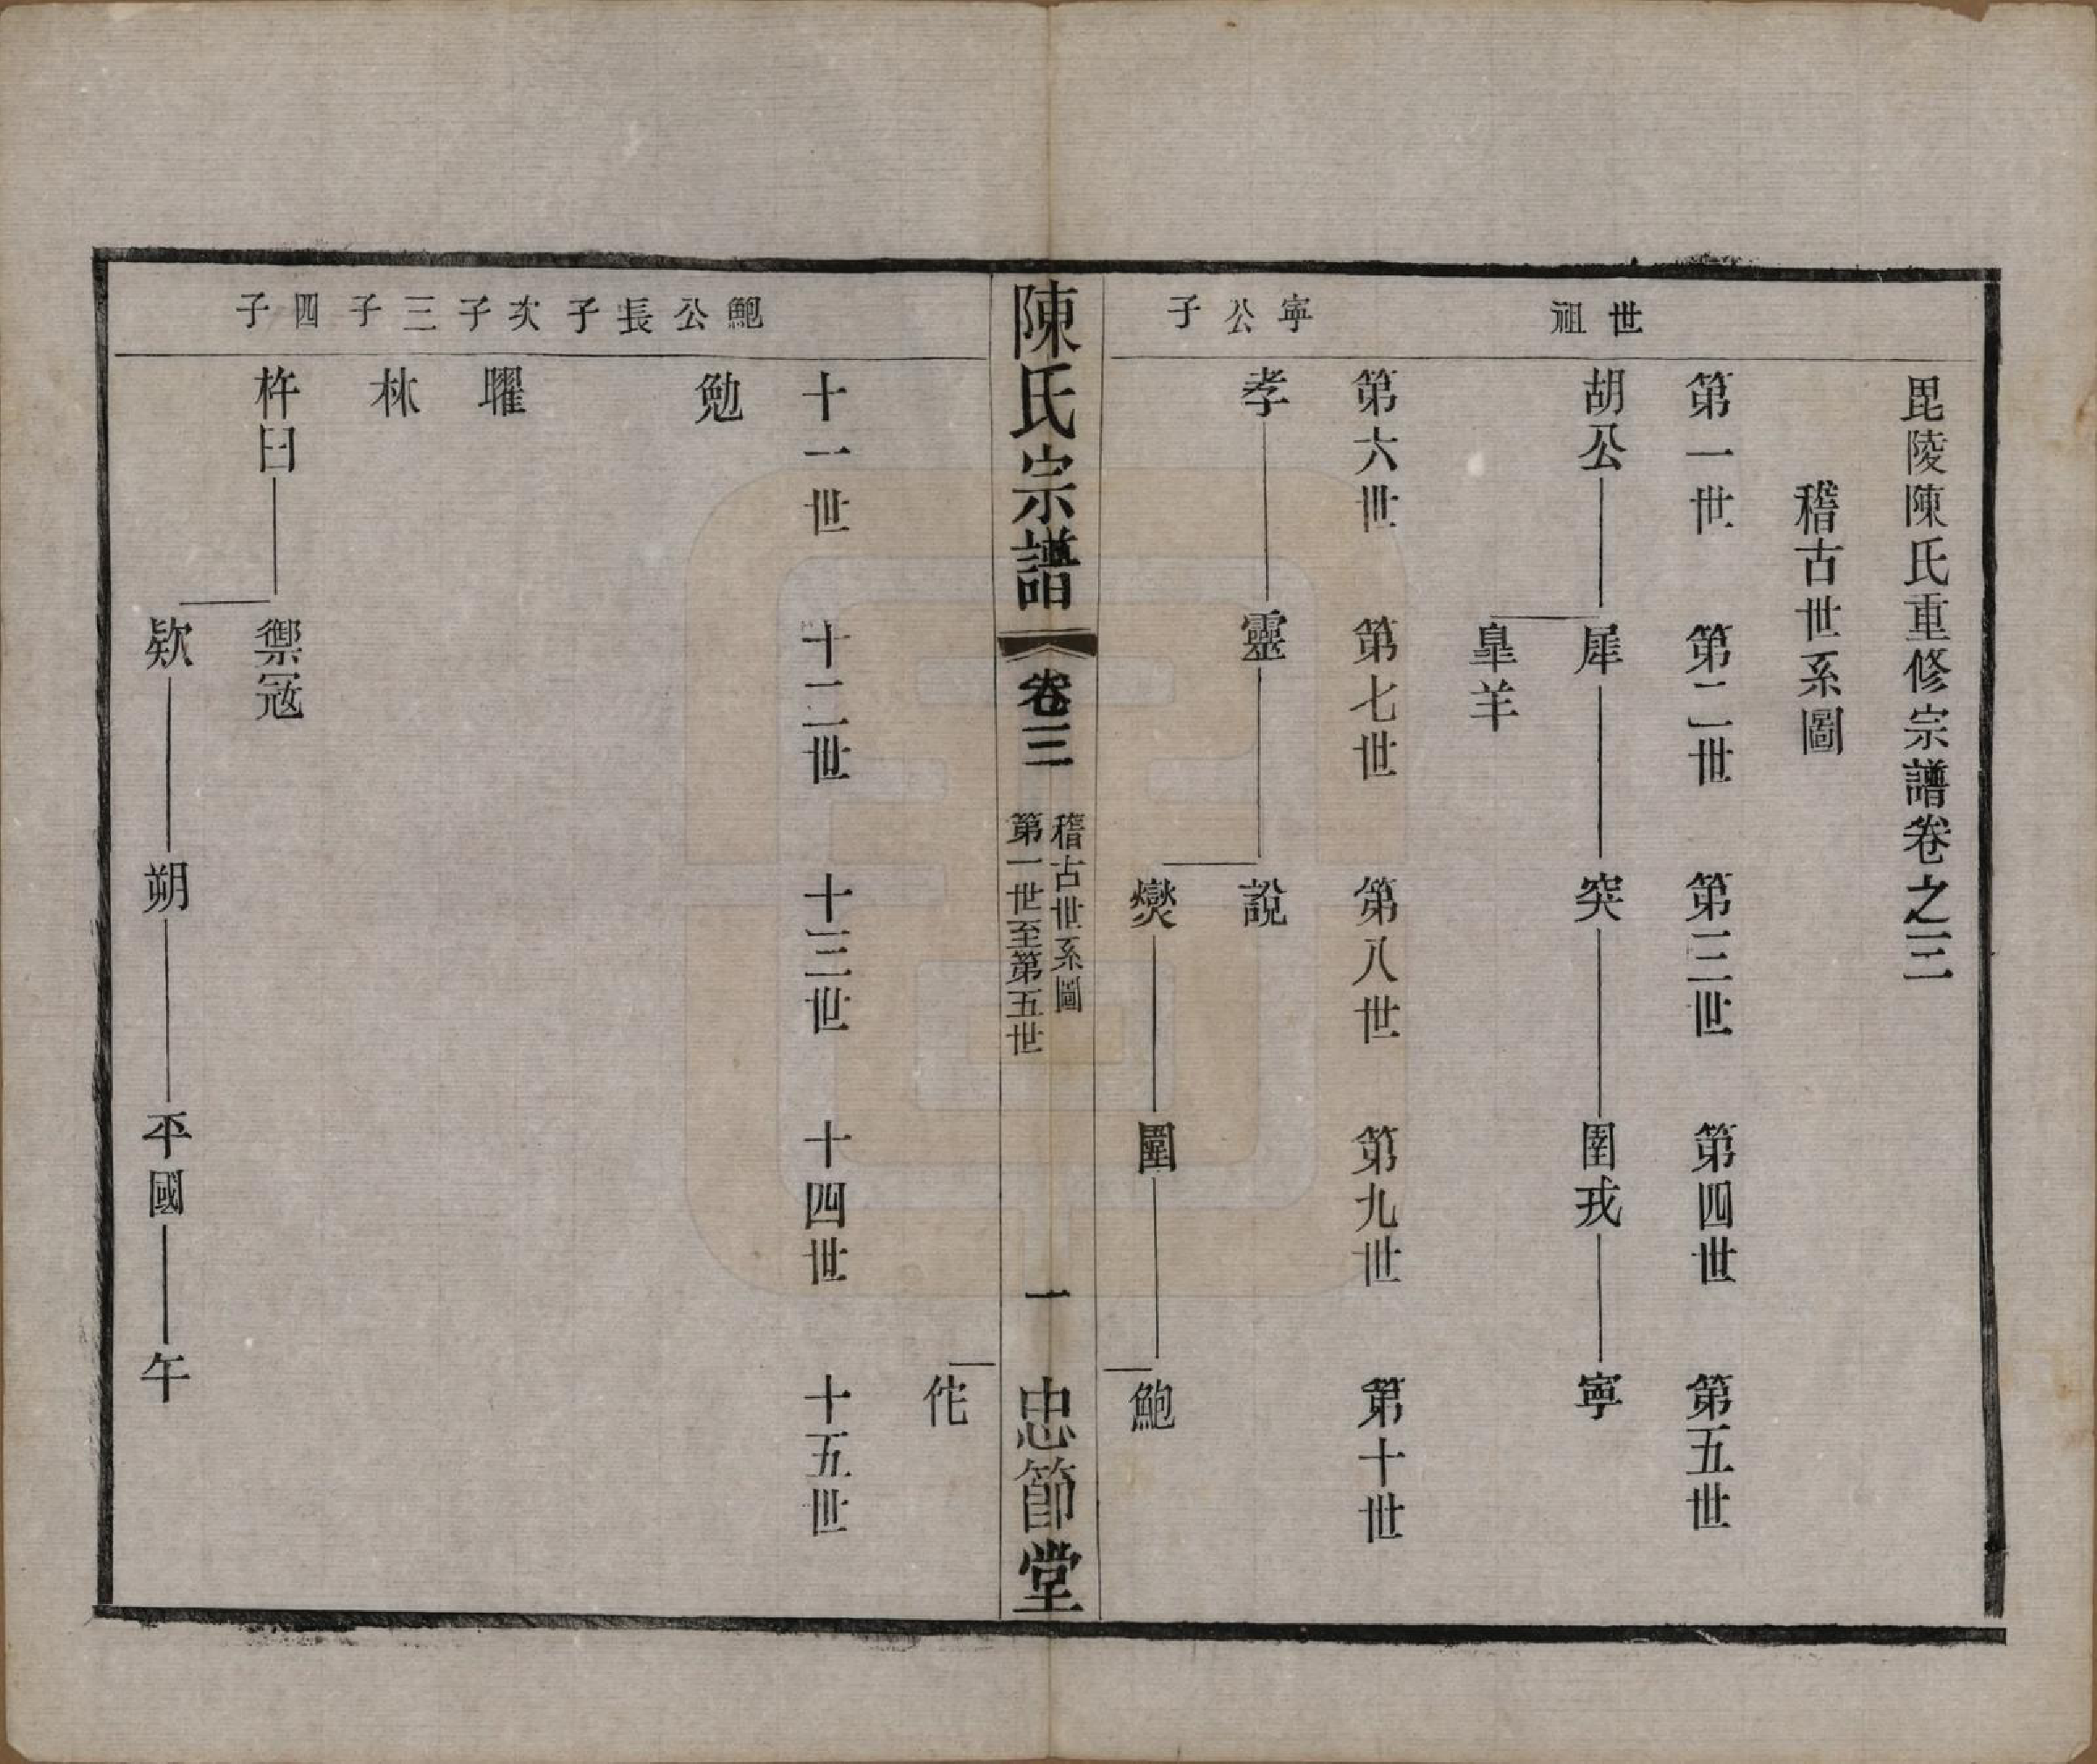 毘陵陳氏重修宗譜卷之三
稽古世系圖
第一世 第二世 第三世 第四世 第五世
世祖
胡公 犀 突 圉戎 寧
皐羊
第六世 第七世 第八世 第九世 第十世
寧公子
孝 靈 說
燮 圍 鮑
陳氏宗譜 卷三 稽古世系圖 第一世至第五世 一 忠節堂
佗
十一世 十二世 十三世 十四世 十五世
鮑公長子 次子 三子 四子
勉
躍
林
杵臼 禦寇
欵 朔 平國 午